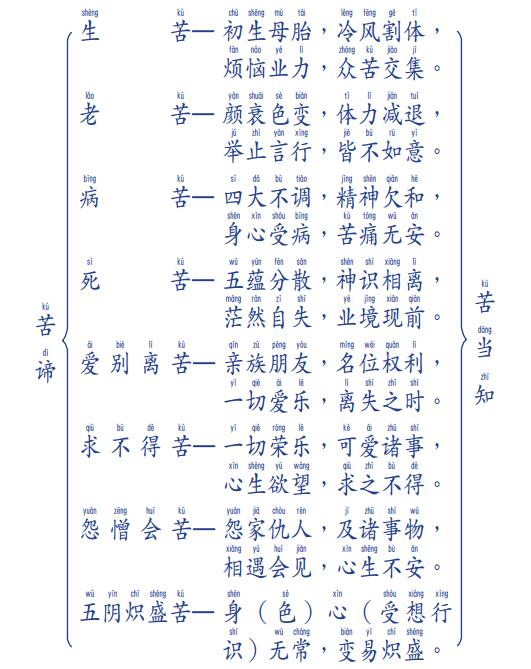 苦谛
shēng kǔ chū shēng mǔ tāi lěng fēng gē tǐ
生苦— 初生母胎，冷风割体，
fán nǎo yè lì zhòng kǔ jiāo jí
烦恼业力，众苦交集。
lǎo kǔ yán shuāi sè biàn tǐ lì jiǎn tuì
老苦— 颜衰色变，体力减退，
jǔ zhǐ yán xíng jiē bù rú yì
举止言行，皆不如意。
bìng kǔ sì dà bù tiáo jīng shén qiàn hé
病苦— 四大不调，精神欠和，
shēn xīn shòu bìng kǔ tòng wú ān
身心受病，苦痛无安。
sǐ kǔ wǔ yùn fēn sàn shén shí xiāng lí
死苦— 五蕴分散，神识相离，
máng rán zì shī yè jìng xiàn qián
茫然自失，业境现前。
ài bié lí kǔ qīn zú péng yǒu míng wèi quán lì
爱别离苦— 亲族朋友，名位权利，
yī qiè ài lè lí shī zhī shí
一切爱乐，离失之时。
qiú bù dé kǔ yī qiè róng lè kě ài zhū shì
求不得苦— 一切荣乐，可爱诸事，
xīn shēng yù wàng qiú zhī bù dé
心生欲望，求之不得。
yuàn zēng huì kǔ yuàn jiā chóu rén jí zhū shì wù
怨憎会苦— 怨家仇人，及诸事物，
xiāng yù huì jiàn xīn shēng bù ān
相遇会见，心生不安。
wǔ yīn chì shèng kǔ shēn sè xīn shòu xiǎng xíng
五阴炽盛苦— 身（色）心（受想行
shí wú cháng biàn yì chì shèng
识）无常，变易炽盛。
kǔ dì
kǔ dāng zhī
苦当知